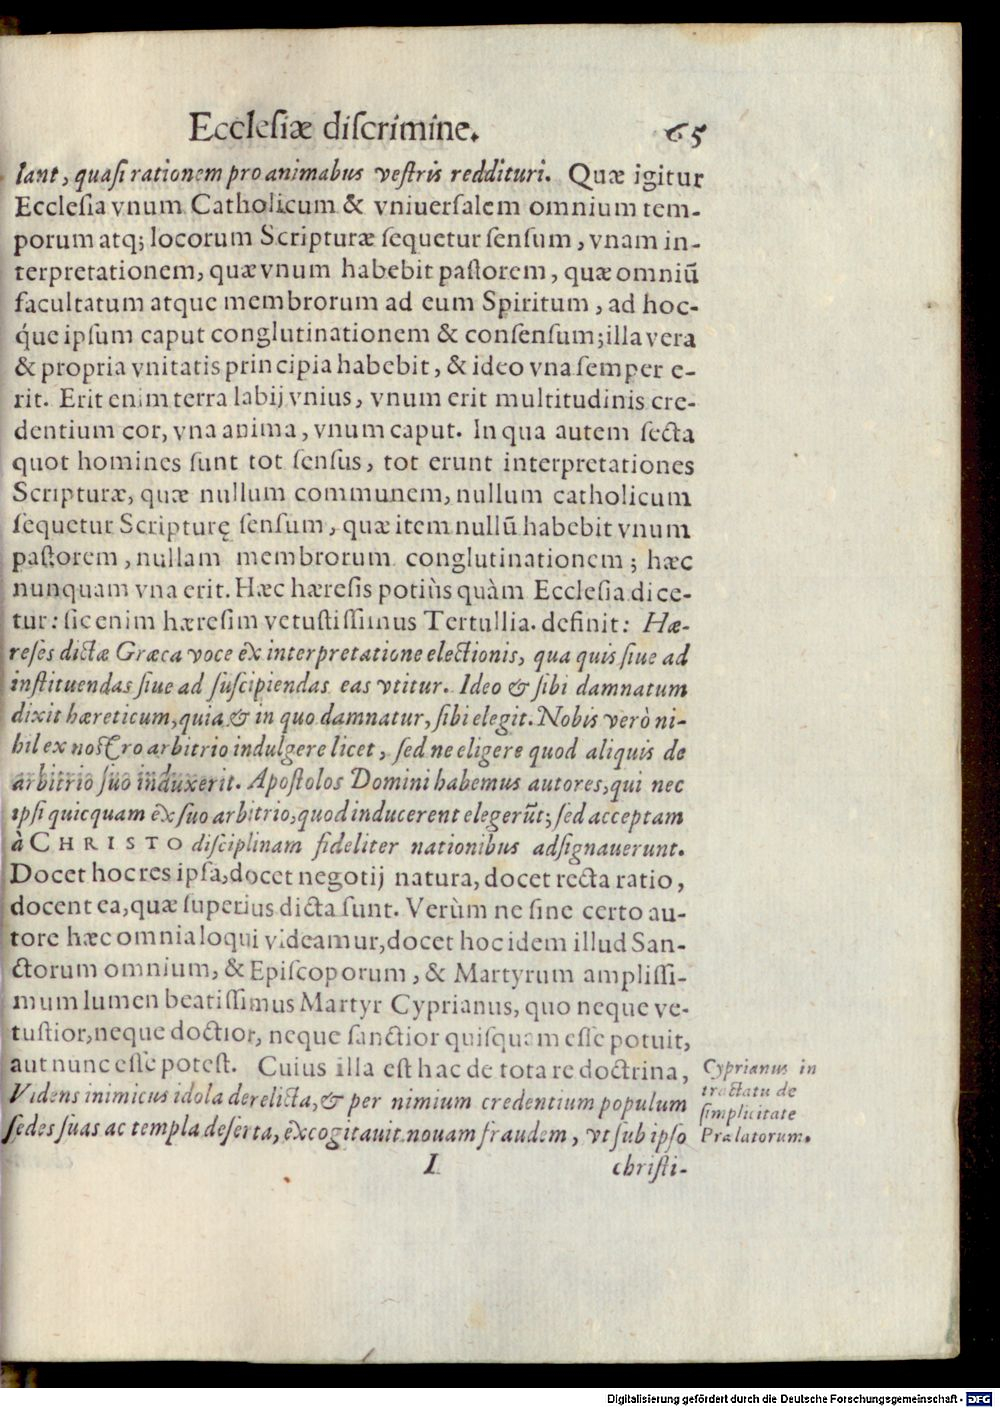 Ecclesiæ discrimine.
65
lant, quasi rationem pro animabus vestris reddituri. Quæ igitur
Ecclesia vnum Catholicum & vniuersalem omnium tem-
porum atq; locorum Scripturæ sequetur sensum, vnam in-
terpretationem, quæ vnum habebit pastorem, quæ omniũ
facultatum atque membrorum ad eum Spiritum, ad hoc-
q́ue ipsum caput conglutinationem & consensum; illa vera
& propria vnitatis principia habebit, & ideo vna semper e-
rit. Erit enim terra labij vnius, vnum erit multitudinis cre-
dentium cor, vna anima, vnum caput. In qua autem secta
quot homines sunt tot sensus, tot erunt interpretationes
Scripturæ, quæ nullum communem, nullum catholicum
sequetur Scripturę sensum, quæ item nullũ habebit vnum
pastorem, nullam membrorum conglutinationem; hæc
nunquam vna erit. Hæc hæresis potiùs quàm Ecclesia dice-
tur: sic enim hæresim vetustissimus Tertullia. definit: Hæ-
reses dictæ Græca voce ex interpretatione electionis, qua quis siue ad
instituendas siue ad suscipiendas eas vtitur. Ideo & sibi damnatum
dixit hæreticum, quia & in quo damnatur, sibi elegit. Nobis verò ni-
hil ex nostro arbitrio indulgere licet, sed ne eligere quod aliquis de
arbitrio suo induxerit. Apostolos Domini habemus autores, qui nec
ipsi quicquam ex suo arbitrio, quod inducerent elegerũt; sed acceptam
à CHRISTO disciplinam fideliter nationibus adsignauerunt.
Docet hoc res ipsa, docet negotij natura, docet recta ratio,
docent ea, quæ superius dicta sunt. Verùm ne sine certo au-
tore hæc omnia loqui videamur, docet hoc idem illud San-
ctorum omnium, & Episcoporum, & Martyrum amplissi-
mum lumen beatissimus Martyr Cyprianus, quo neque ve-
tustior, neque doctior, neque sanctior quisquam esse potuit,
aut nunc esse potest. Cuius illa est hac de tota re doctrina,
Videns inimicus idola derelicta, & per nimium credentium populum
sedes suas ac templa deserta, excogitauit nouam fraudem, vt sub ipso
Cyprianus in
tractatu de
simplicitate
Prælatorum.
I
christi-
Digitalisierung gefördert durch die Deutsche Forschungsgemeinschaft - DFG